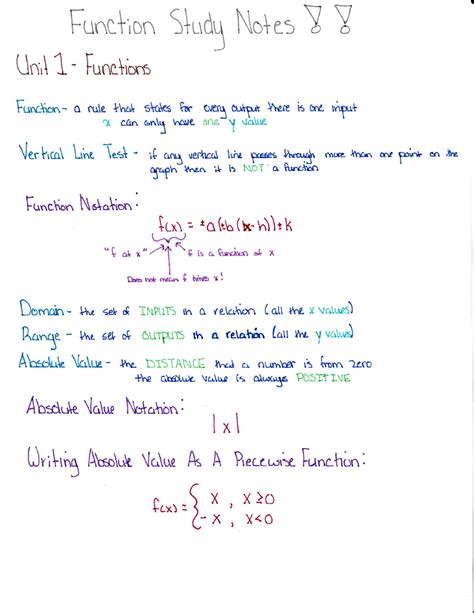 Function Study Notes !!
Unit 1 - Functions
Function - a rule that states for every output there is one input
x can only have one y value
Vertical Line Test - if any vertical line passes through more than one point on the
graph then it is NOT a function
Function Notation:
f(x) = ±a(±b(x-h))±k
"f at x" f is a function of x
Does not mean f times x!
Domain - the set of INPUTS in a relation (all the x values)
Range - the set of OUTPUTS in a relation (all the y values)
Absolute Value - the DISTANCE that a number is from zero
the absolute value is always POSITIVE
Absolute Value Notation:
|x|
Writing Absolute Value As A Piecewise Function:
f(x) = { x , x≥0
-x , x<0